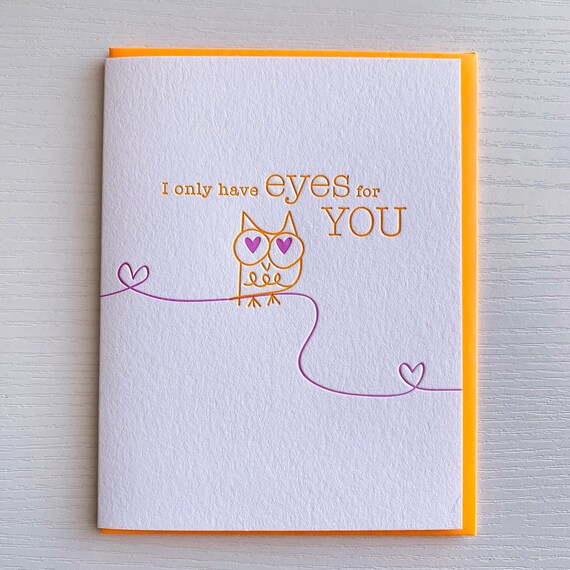 I only have eyes for
YOU